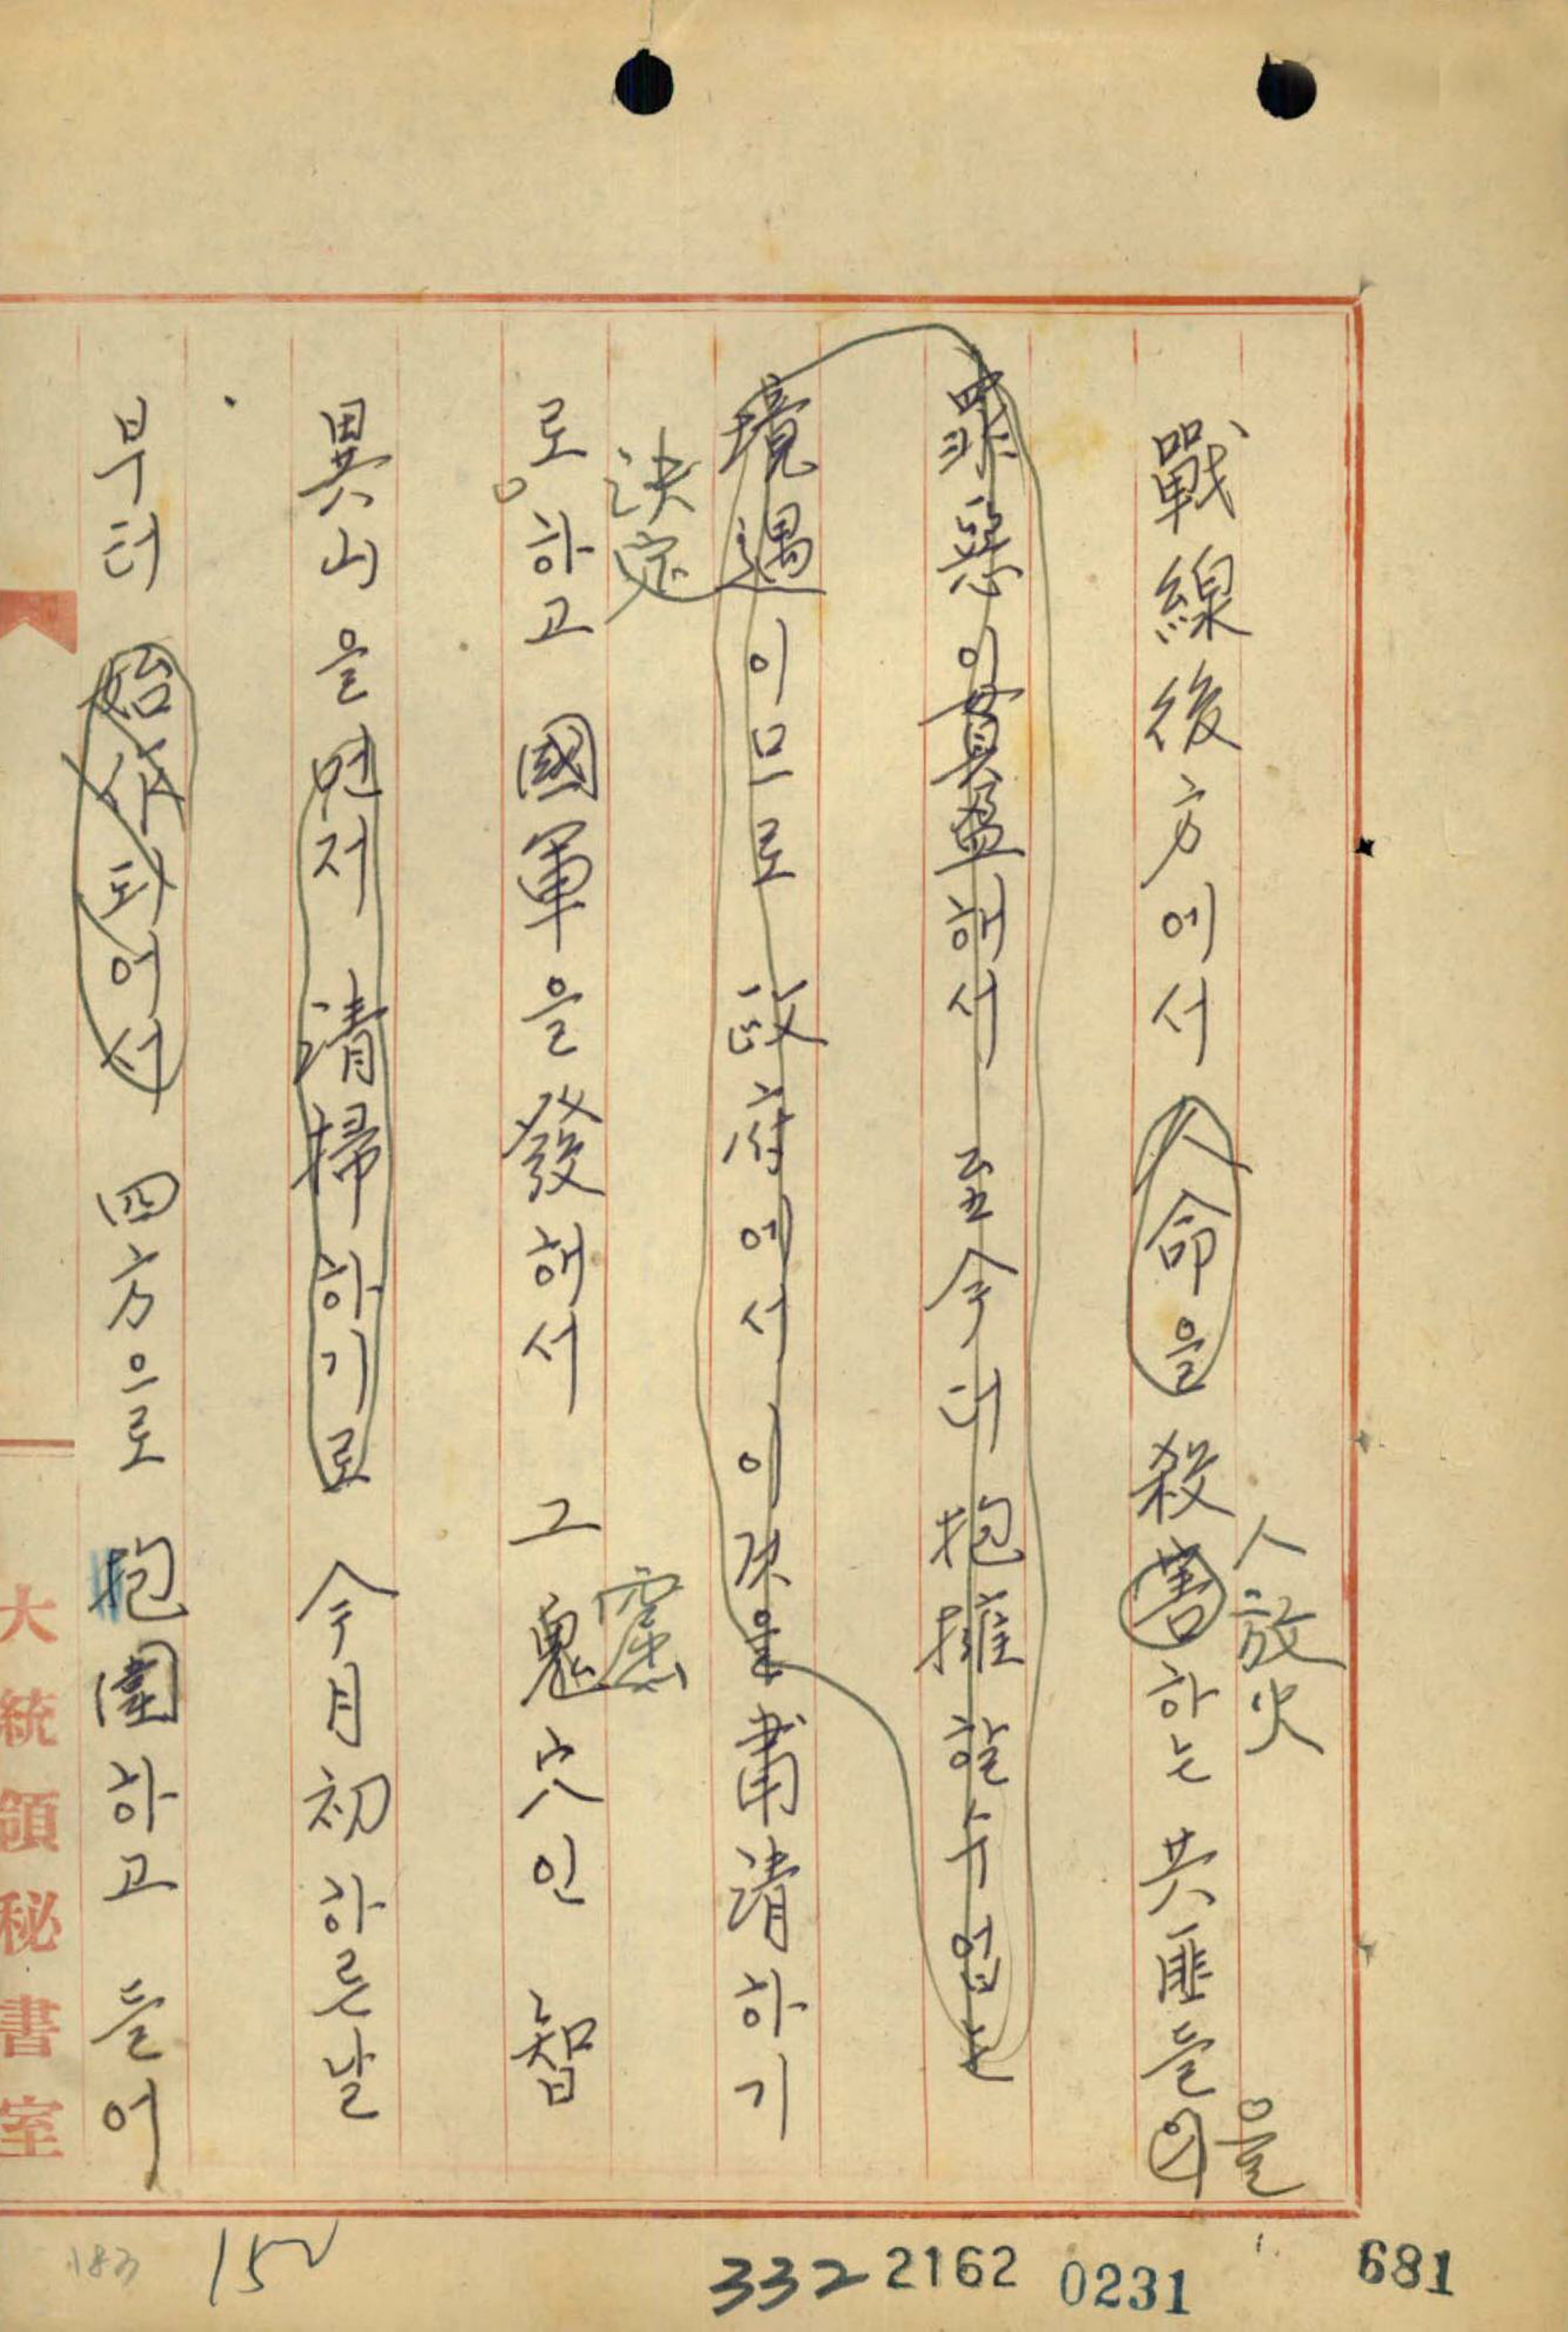 戰線後方에서 人命을 殺害하는 共匪들의
人放火
을
罪惡이 貫盈해서 至今대 抱擁할 수 업는
境遇이므로 政府에서 이것을 肅清하기
決定
로 하고 國軍을 發해서 그 鬼穴인 智
窟
異山을 먼저 清掃하기로 今月初하룻날
부터 始作되어서 四方으로 抱圍하고 들어
大統領秘書室
183
152
332 2162 0231 681